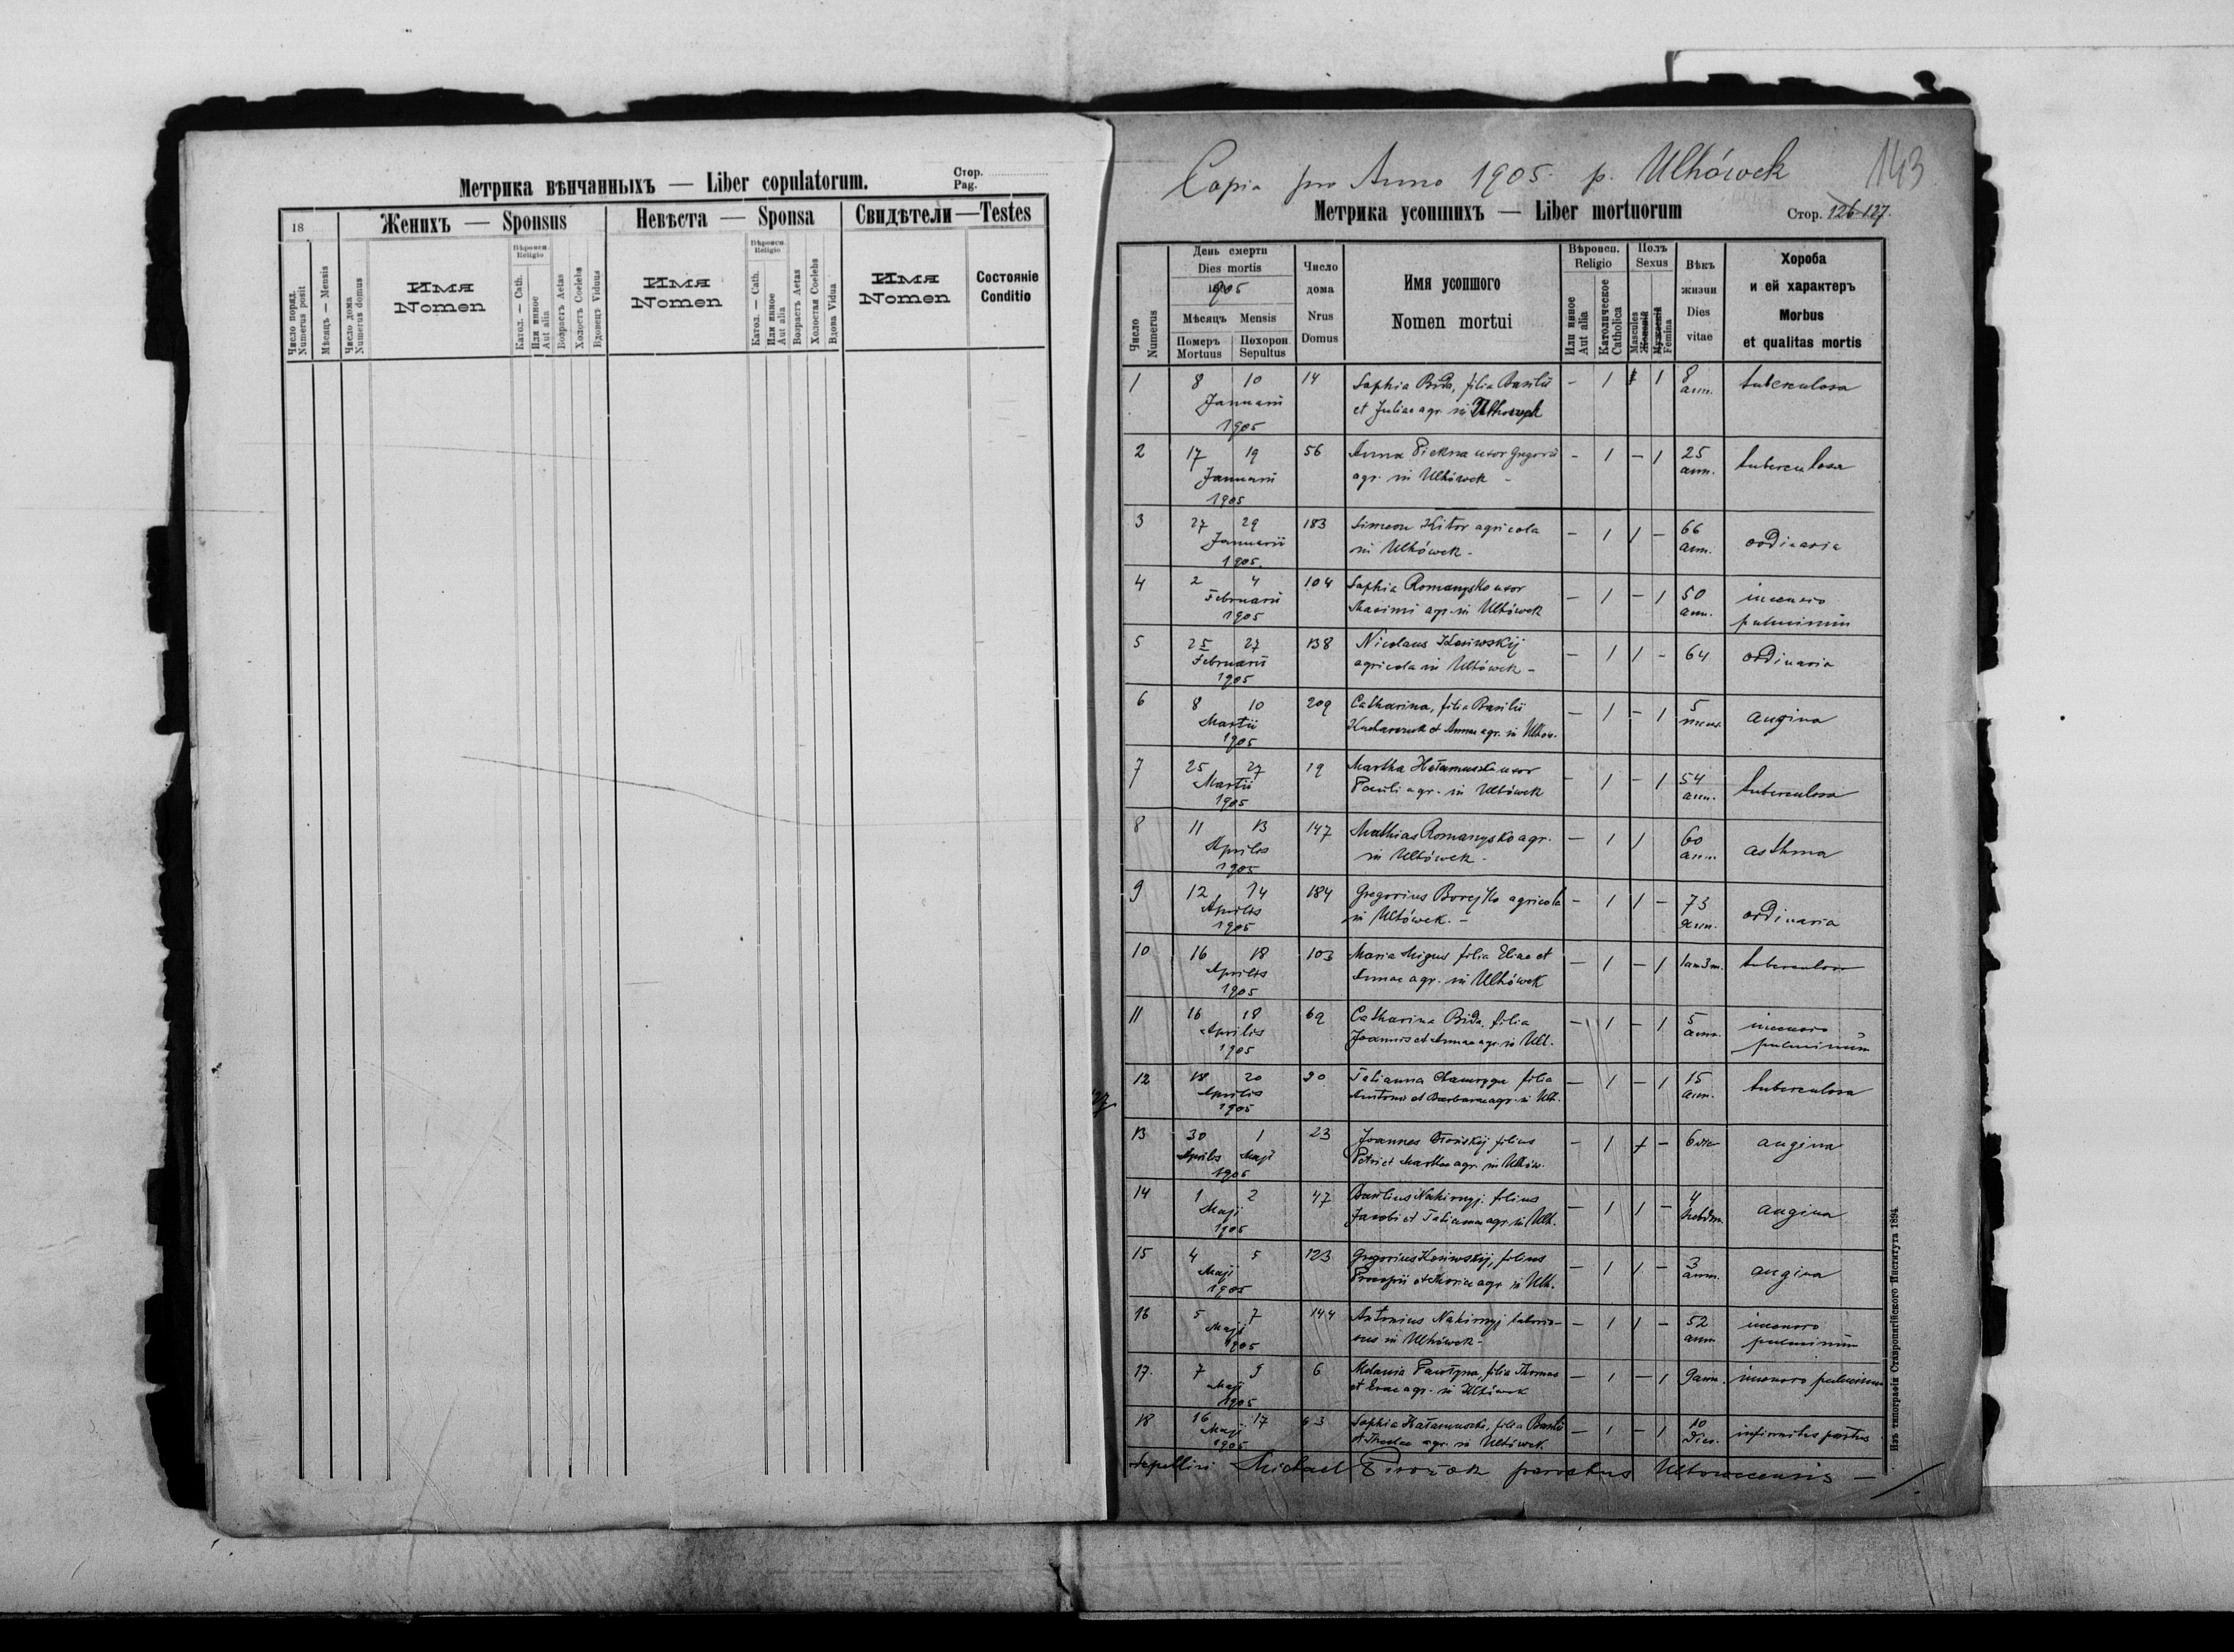 Метрика вѣнчанныхъ — Liber copulatorum.
Стор.
Pag.
18
Женихъ — Sponsus
Невѣста — Sponsa
Свидѣтели — Testes
Число поряд.
Numerus posit
Мѣсяцъ — Mensis
Число дома
Numerus domus
Имя
Nomen
Вѣроисп.
Religio
Катол. — Cath.
Или инное
Aut alia
Возрастъ Aetas
Холостъ Coelebs
Вдовецъ Viduus
Имя
Nomen
Вѣроисп.
Religio
Катол. — Cath.
Или инное
Aut alia
Возрастъ Aetas
Холостая Coelebs
Вдова Vidua
Имя
Nomen
Состояніе
Conditio
Copia pro Anno 1905. p. Ulhówek
143
Метрика усопшихъ — Liber mortuorum
Стор. 126-127.
Число
Numerus
День смерти
Dies mortis
1905
Мѣсяцъ Mensis
Померъ
Mortuus
Похорон
Sepultus
Число
дома
Nrus
Domus
Имя усопшого
Nomen mortui
Вѣроисп.
Religio
Или инное
Aut alia
Католическое
Catholica
Полъ
Sexus
Mascules
Женскій
Мужескій
Femina
Вѣкъ
жизни
Dies
vitae
Хороба
и ей характеръ
Morbus
et qualitas mortis
1 8 10 14 Sophia Bida, filia Basilii - 1 1 8 tuberculosa
Januarii et Juliae agr. in ann.
1905
2 17 19 56 Anna Piekna uxor Gregorii - 1 - 1 25 tuberculosa
Januarii agr. in Ulhówek - ann.
1905
3 27 29 183 Simeon Kitor agricola - 1 1 - 66 ordinaria
Januarii in Ulhówek - ann.
1905.
4 2 4 104 Sophia Romanysko uxor - 1 - 1 50
Februarii Maximi agr. in Ulhówek ann. pulmonum
1905
5 25 27 138 Nicolaus - 1 1 - 64 ordinaria
Februarii agricola in Ulhówek -
1905
6 8 10 209 Catharina, filia Basilii - 1 - 1 5 angina
Martii Kucharczuk et Annae agr. in Ulhow. mens.
1905
7 25 27 19 Martha Hałamuszka uxor - 1 - 1 54 tuberculosa
Martii Pauli agr. in Ulhówek ann.
1905
8 11 13 147 Mathias Romanysko agr. - 1 1 60 asthma
Aprilis in Ulhówek - ann.
1905
9 12 14 184 Gregorius Borejko agricola - 1 1 - 73 ordinaria
Aprilis in Ulhówek. - ann.
1905
10 16 18 103 Maria Migus filia Eliae et - 1 - 1 1 an 3 m. tuberculosa
Aprilis Annae agr. in Ulhówek
1905
11 16 18 69 Catharina Bida, filia - 1 - 1 5
Aprilis Joannis et Annae agr. in Ulh. ann. pulmonum
1905
12 18 20 20 Tatianna filia - 1 - 1 15 tuberculosa
Aprilis Antonii et Barbarae agr. in Ulh. ann.
1905
127
13 30 1 23 Joannes filius - 1 1 - 6 angina
Aprilis Maji Petri et Marthae agr. in Ulhów.
1905
14 1 2 47 Basilius Nakirnyj filius - 1 1 - 4 angina
Maji Jacobi et Tatiannae agr. in Ulh. hebdom.
1905
15 4 5 123 Gregorius Kosiwskij, filius - 1 1 - 3 angina
Maji Procopii et Mariae agr. in Ulh. ann.
1905
16 5 7 144 Antonius Nakirnyj laborio- - 1 1 - 52
Maji sus in Ulhówek - ann. pulmonum
1905
17. 7 9 6 Melania filia Thomae - 1 - 1 9 ann. pulmonum
Maji et Evae agr. in Ulhówek
1905
18 16 17 63 Sophia Hałamuszka, filia Basilii - 1 - 1 10 infirmitas partus
Maji et Theclae agr. in Ulhówek dies.
1905
Sepelivi Michael parochus Ulhowecensis —
Изъ типографіи Ставропигійского Института 1894.